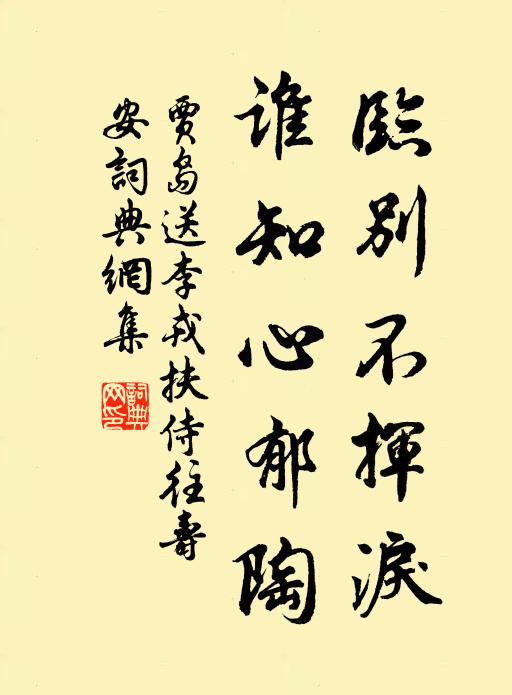 臨別不揮淚
誰知心郁陶
賈島送李戎扶侍往壽
安詞典網集
詞典
网印